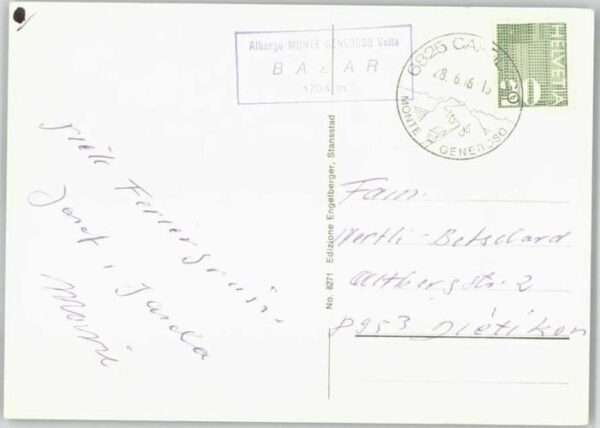 Albergo MONTE GENEROSO Vetta
BAZAR
1704 m
6825 CA
28.6.76-15
MONTE GENEROSO
HELVETIA
10
No. 8271 Edizione Engelberger, Stansstad
Viele Feriengrüsse
Josef,
Fam.
Wertli-Betschard
Altbergstr. 2
8953 Dietikon